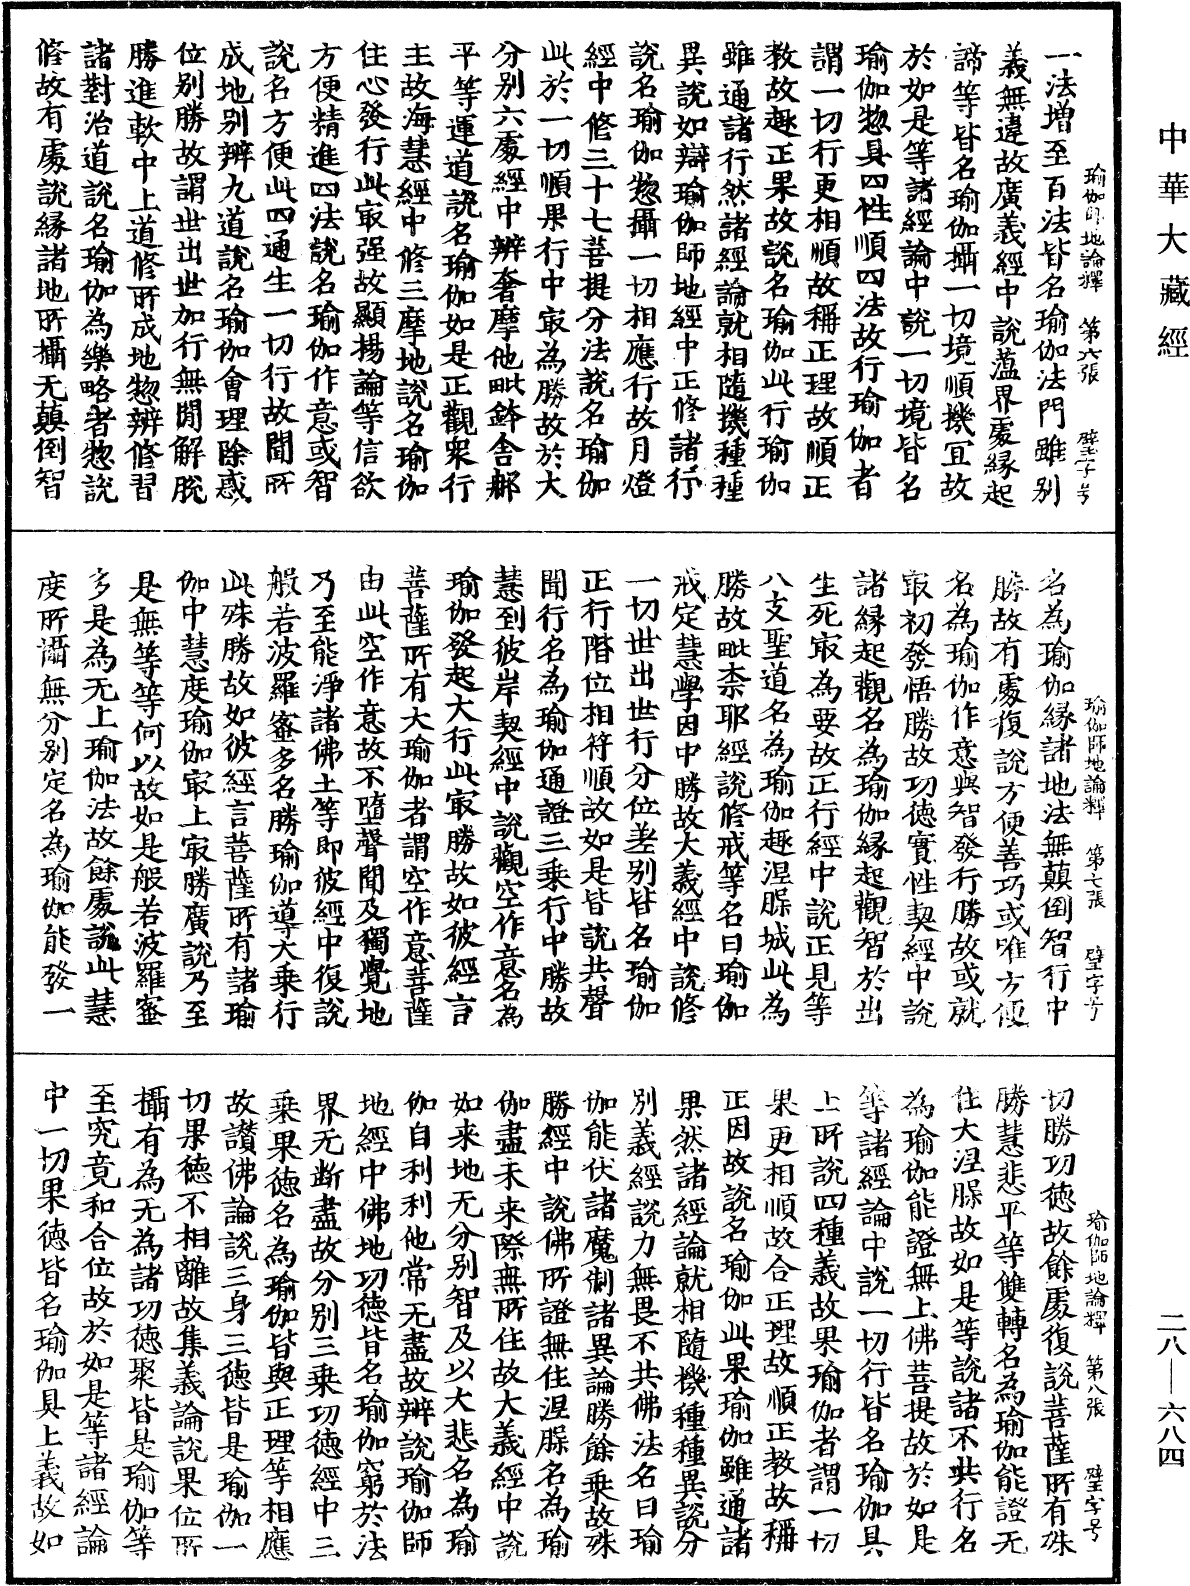 中華大藏經
瑜伽師地論釋 第六張 壁字号
一法增至百法皆名瑜伽法門雖別
義無違故廣義經中說蘊界處緣起
諦等皆名瑜伽攝一切境順機宜故
於如是等諸經論中說一切境皆名
瑜伽惣具四性順四法故行瑜伽者
謂一切行更相順故稱正理故順正
教故趣正果故說名瑜伽此行瑜伽
雖通諸行然諸經論就相隨機種種
異說如辯瑜伽師地經中正修諸行
說名瑜伽惣攝一切相應行故月燈
經中修三十七菩提分法說名瑜伽
此於一切順果行中冣為勝故於大
分別六處經中辨奢摩他毗鉢舍那
平等運道說名瑜伽如是正觀衆行
主故海慧經中修三摩地說名瑜伽
住心發行此冣强故顯揚論等信欲
方便精進四法說名瑜伽作意或智
說名方便此四通生一切行故聞所
成地別辨九道說名瑜伽會理除惑
位別勝故謂世出世加行無間解脫
勝進軟中上道修所成地惣辨修習
諸對治道說名瑜伽為樂略者惣說
修故有處說緣諸地所攝无顛倒智
瑜伽師地論釋 第七張 壁字号
名為瑜伽緣諸地法無顛倒智行中
勝故有處復說方便善巧或唯方便
名為瑜伽作意與智發行勝故或就
冣初發悟勝故功德實性契經中說
諸緣起觀名為瑜伽緣起觀智於出
生死冣為要故正行經中說正見等
八支聖道名為瑜伽趣涅槃城此為
勝故毗柰耶經說修戒等名曰瑜伽
戒定慧學因中勝故大義經中說修
一切世出世行分位差別皆名瑜伽
正行階位相符順故如是皆說共聲
聞行名為瑜伽通證三乘行中勝故
慧到彼岸契經中說觀空作意名為
瑜伽發起大行此冣勝故如彼經言
菩薩所有大瑜伽者謂空作意菩薩
由此空作意故不墮聲聞及獨覺地
乃至能淨諸佛土等即彼經中復說
般若波羅蜜多名勝瑜伽導大乘行
此殊勝故如彼經言菩薩所有諸瑜
伽中慧度瑜伽冣上冣勝廣說乃至
是無等等何以故如是般若波羅蜜
多是為无上瑜伽法故餘處說此慧
度所攝無分別定名為瑜伽能發一
瑜伽師地論釋 第八張 壁字号
切勝功德故餘處復說菩薩所有殊
勝慧悲平等雙轉名為瑜伽能證无
住大涅槃故如是等說諸不共行名
為瑜伽能證無上佛菩提故於如是
等諸經論中說一切行皆名瑜伽具
上所說四種義故果瑜伽者謂一切
果更相順故合正理故順正教故稱
正因故說名瑜伽此果瑜伽雖通諸
果然諸經論就相隨機種種異說分
別義經說力無畏不共佛法名曰瑜
伽能伏諸魔制諸異論勝餘乘故殊
勝經中說佛所證無住涅槃名為瑜
伽盡未來際無所住故大義經中說
如來地无分別智及以大悲名為瑜
伽自利利他常无盡故辨說瑜伽師
地經中佛地功德皆名瑜伽窮於法
界无斷盡故分別三乘功德經中三
乘果德名為瑜伽皆與正理等相應
故讚佛論說三身三德皆是瑜伽一
切果德不相離故集義論說果位所
攝有為无為諸功德聚皆是瑜伽等
至究竟和合位故於如是等諸經論
中一切果德皆名瑜伽具上義故如
二八—六八四